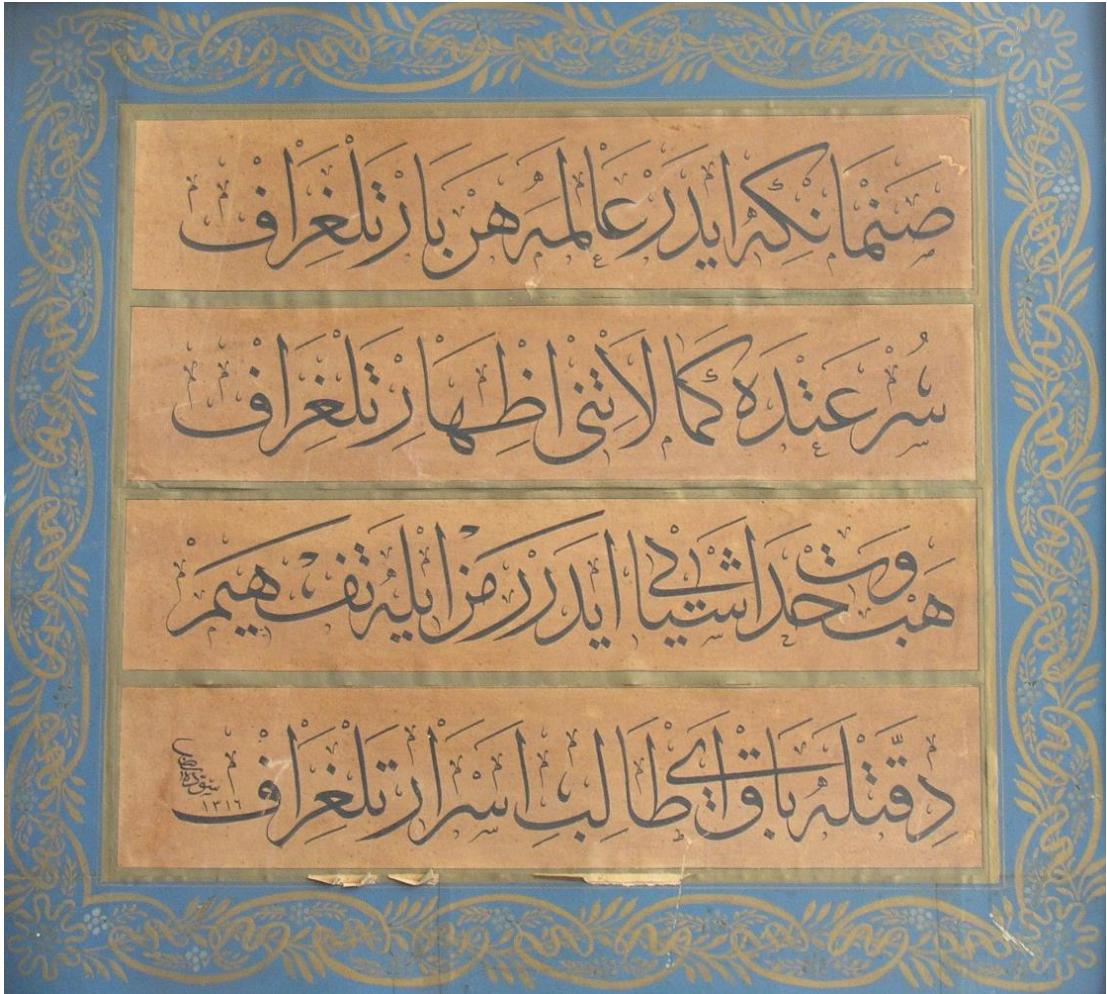 صنما نكه ايدر عالمه هن بار تلغراف
سرعتده كمالاتنى اظهار تلغراف
هب وحدت اشيايى ايدر رمز ايله تفهيم
دقتله باق اى طالب اسرار تلغراف
١٣١٦